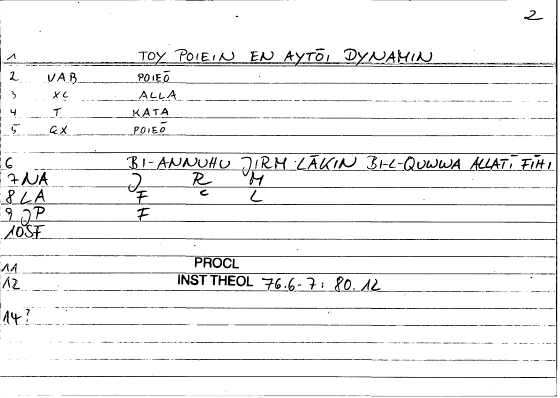 2
1 TOY POIEIN EN AYTŌI DYNAMIN
2 VAB POIEŌ
3 XC ALLA
4 T KATA
5 QX POIEŌ
6 BI-ANNUHU ǦIRM LĀKIN BI-L-QUWWA ALLATĪ FĪHI
7 NA Ǧ R M
8 LA F c L
9 ǦP F
10 SF
11 PROCL
12 INST THEOL 76.6-7: 80.12
14?